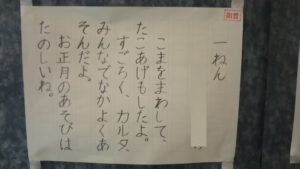 一ねん
こまをまわして、
たこあげもしたよ。
すごろく、カルタ、
みんなでなかよくあ
そんだよ。
お正月のあそびは
たのしいね。